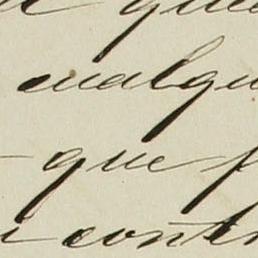 que
cualqu
que f
i contr